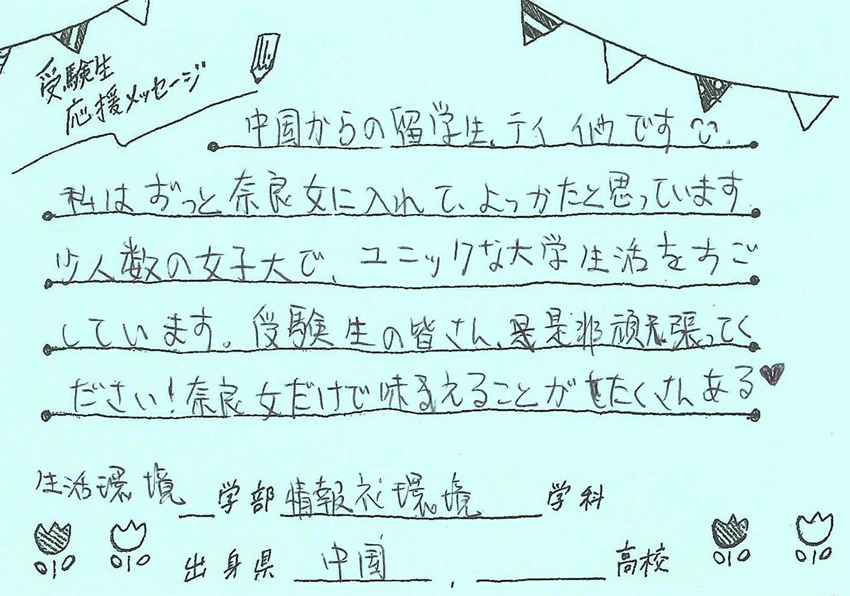 受験生
応援メッセージ
中国からの留学生、テイ です
私はずっと奈良女に入れて、よっかたと思っています
少人数の女子大で、ユニックな大学生活をすご
しています。受験生の皆さん、是非頑張ってく
ださい！奈良女だけで味えることがたくさんある♥
生活環境 学部 情報衣環境 学科
出身県 中国 , 高校